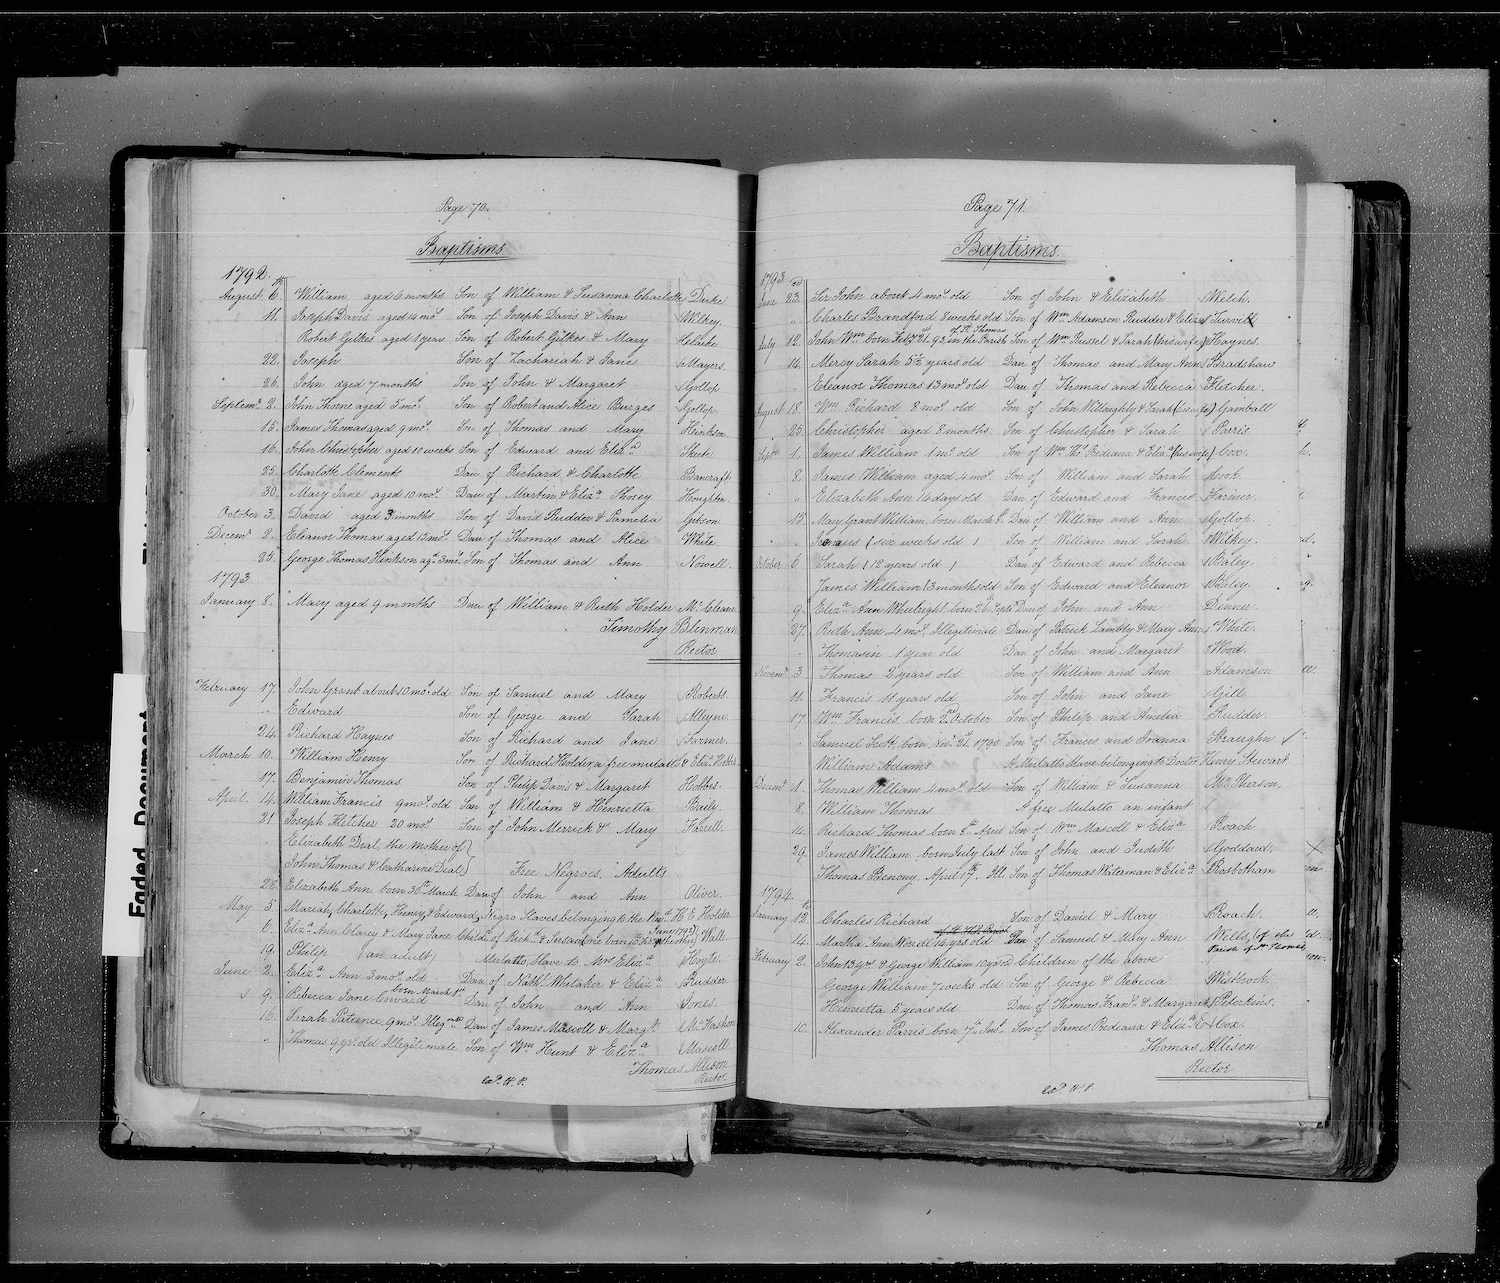 Page 70.
Baptisms
1792.
August 6. William aged 6 months Son of William & Susanna Charlotte Duke
11. Joseph Davis aged 14 mos. Son of Joseph Davis & Ann Wilkey
Robert Gilkes aged 1 year Son of Robert Gilkes & Mary
22. Joseph Son of Zachariah & Jane Mayers
26. John aged 7 months Son of John & Margaret Gollop
Septemr. 2. John Thorne aged 5 mos. Son of Robert and Alice Burges Gollop
15. James Thomas aged 9 mos. Son of Thomas and Mary Hinkson
16. John Christopher aged 10 weeks Son of Edward and Eliza. Skeete
23. Charlotte Clements Dau of Richard & Charlotte Bancraft
30. Mary Jane aged 10 mos. Dau of Martin & Eliza. Thorey Houghton
October 3. David aged 3 months Son of David Rudder & Pamelia Gibson
Decemr. 2. Eleanor Thomas aged 13 mos. Dau of Thomas and Alice White
25. George Thomas Hinkson ag. 3 mos. Son of Thomas and Ann Nowell.
1793
January 8. Mary aged 9 months Dau of William & Ruth Holder Mc. Clean
Timothy Blenman
Rector
February 17. John Grant about 10 mos. old Son of Samuel and Mary Roberts
" Edward Son of George and Sarah Alleyne
24. Richard Haynes Son of Richard and Jane Farmer.
March 10. William Henry Son of Richard Holder a free mulatto & Eliza. Hobbs
17. Benjamin Thomas Son of Philip Davis & Margaret Hobbs.
April. 14. William Francis 9 mos. old Son of William & Henrietta Baily
21 Joseph Fletcher 20 mos. Son of John Merrick & Mary Farrell.
Elizabeth Deal, the Mother of
John Thomas & Catharine Deal Free Negroes, Adults
28. Elizabeth Ann born 30th March Dau of John and Ann Oliver.
May 5. Mariah, Charlotte, Henry, & Edward, Negro Slaves belonging to the Revd. H. E. Holder
6. Eliza. Ann Clarey & Mary Jane Childn. of Richd. & Susan Wall
19. Philip (an adult) Mulatto Slave to Mrs Eliza. Hoyte.
June 2. Eliza. Ann 3 mos. old Dau of Nathl. Whitaker & Eliza. Rudder
born March 1st
9. Rebecca Jane Dau of John and Ann Jones.
16. Sarah Patience 9 mos. Illegte. Dau of James Mascoll & Margt.
" Thomas 9 yrs. old Illegitimate Son of Wm. Hunt & Eliza. Mascoll
Thomas Allison
Rector
Exd. H. P.
Page 71.
Baptisms.
1793
June 23. Sir John about 4 mos. old Son of John & Elizabeth Welch.
" Charles Brandford 8 weeks old Son of Wm. Adamson Rudder & Eliza Turvill
of St. Thomas
July 12. John Wm. born Feby. 21st. 92 in the Parish Son of Wm. Russel & Sarah (his wife) Haynes.
14. Mercy Sarah 5½ years old Dau of Thomas and Mary Ann Bradshaw
" Eleanor Thomas 13 mos. old Dau of Thomas and Rebecca Fletcher.
August 18. Wm. Richard 8 mos. old Son of John Willoughby & Sarah (his wife) Gamball
25. Christopher aged 8 months. Son of Christopher & Sarah Parris
Septr. 1. James William 1 mo. old Son of Wm. Ths. Prediana & Eliza. (his wife) Cox.
8. James William aged 4 mos. Son of William and Sarah Cook
" Elizabeth Ann 16 days old Dau of Edward and Frances Farmer.
15. Mary Grant William, born March 8. Dau of William and Ann Gollop.
" (six weeks old) Son of William and Sarah Wilkey.
October 6. Sarah (12 years old) Dau of Edward and Rebecca Baley.
James William 13 months old Son of Edward and Eleanor Baley.
9. Eliza. Ann Wheelright, born 26 Septr. Dau of John and Ann Denner.
27. Ruth Ann 4 mos. Illegitimate Dau of Patrick Lambly & Mary Ann White.
" Thomasin 1 year old Dau of John and Margaret Wood.
Novemr. 3. Thomas 2 years old Son of William and Ann Adamson
11. Francis 11 years old Son of John and Jane Gill
17. Wm. Francis born 2nd October Son of Philip and Amelia Rudder.
" Samuel Scott, born Novr. 21. 1790 Son of Francis and Joanna Straughn
William Adams A Mulatto Slave belonging to Doctor Henry Stewart
Decemr. 1. Thomas William 4 mos. old Son of William & Susanna Mc. Pherson.
8. William Thomas A free Mulatto an infant
" Richard Thomas born 8th. April Son of Wm. Mascoll & Eliza Roach
29. James William born July last Son of John and Judith Goddard.
Thomas Benony April 17th. Ill. Son of Thomas Waterman & Eliza. Rosbotham
1794.
January 12. Charles Richard Son of Daniel & Mary Roach.
14. Martha Ann Wordie 14 yrs old Dau of Samuel & Mary Ann Wills, (of this
Parish of St. Thomas
February 2. John 13 yrs. & George William 10 yrs. old Children of the above
George William 7 weeks old Son of George & Rebecca Westbrook.
Henrietta 5 years old Dau of Thomas Frans. & Margaret Peterkins.
10. Alexander Parris born 7th. Inst. Son of James Prediana & Eliza. Cox.
Thomas Allison
Rector
Exd. H. P.
Faded Document